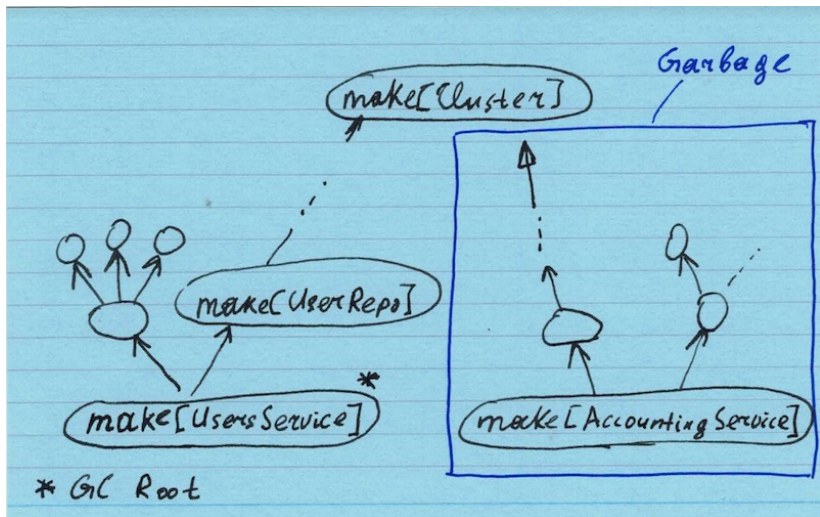 Garbage
make[Cluster]
make[UserRepo]
*
make[UsersService]
make[AccountingService]
* GC Root